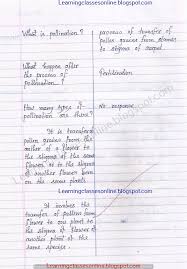 Learningclassesonline.blogspot.com
What is pollination?
process of transfer of
pollen grains from stamens
to stigma of carpel
What happen after
the process of
pollination?
Fertilization
How many types of
pollination are there?
No response
It is transferal
pollen grains from the
anther of a flower to
the stigma of the same
flower or to the stigma
of another flower born
on the same plant
Learningclassesonline.blogspot.com
It involves the
transfer of pollen from
flower to one plant to
the stigma of flower of
another plant of the
same species.
Learningclassesonline.blogspot.com